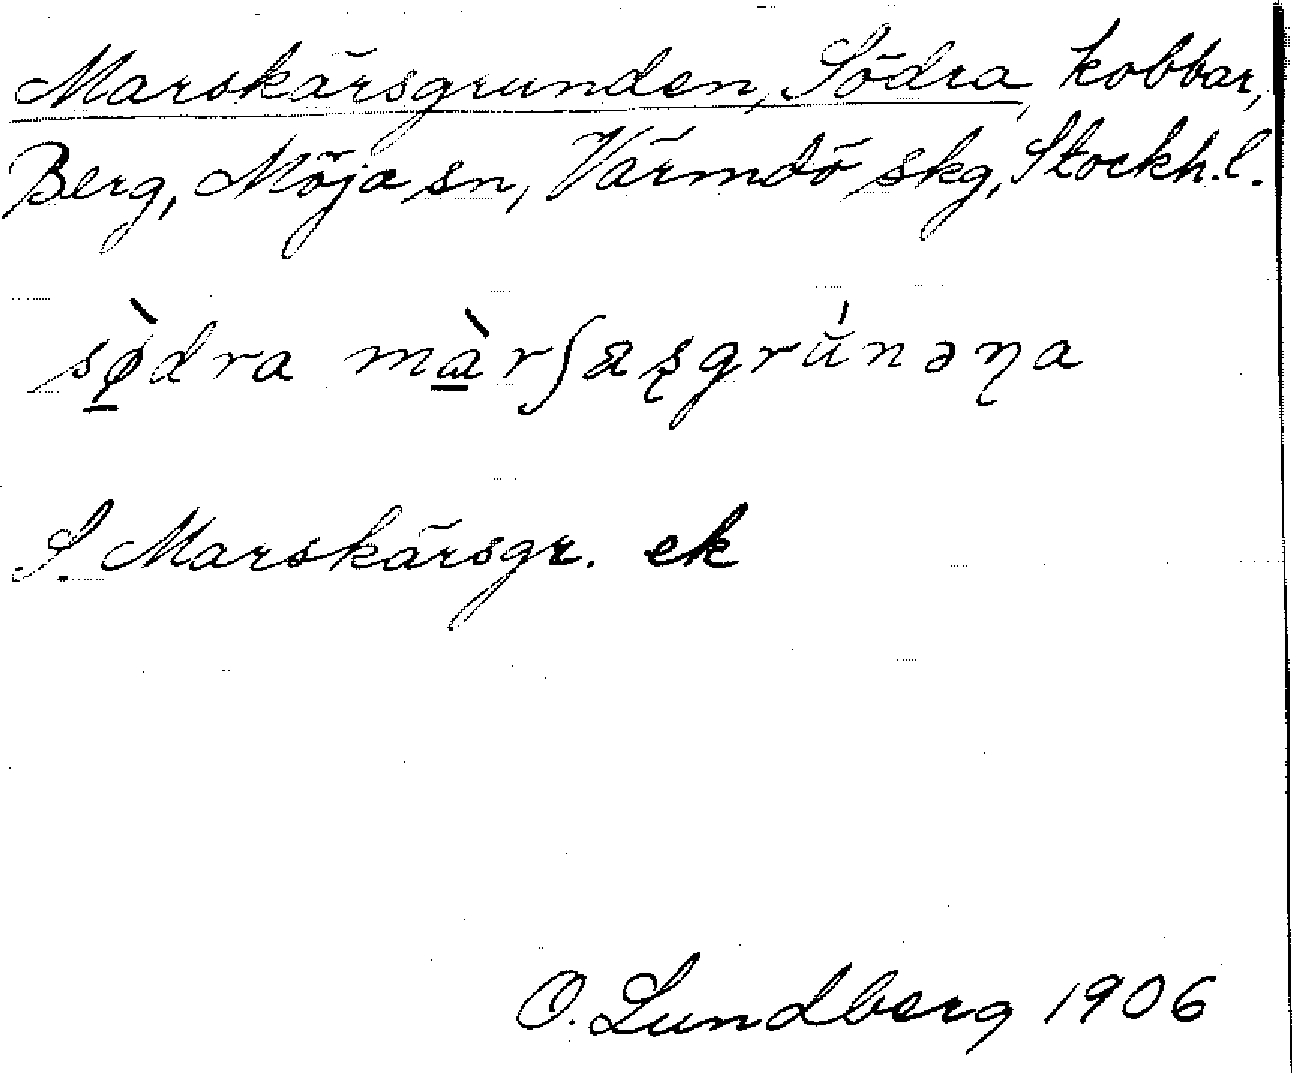 Marskärsgrunden, Södra kobbar,
Berg, Möja sn, Värmdö skg, Stockh. l.
sø̱̀dra mà̱rʃaʂgrǔ́nəɳa
S. Marskärsgr. ek
O. Lundberg 1906